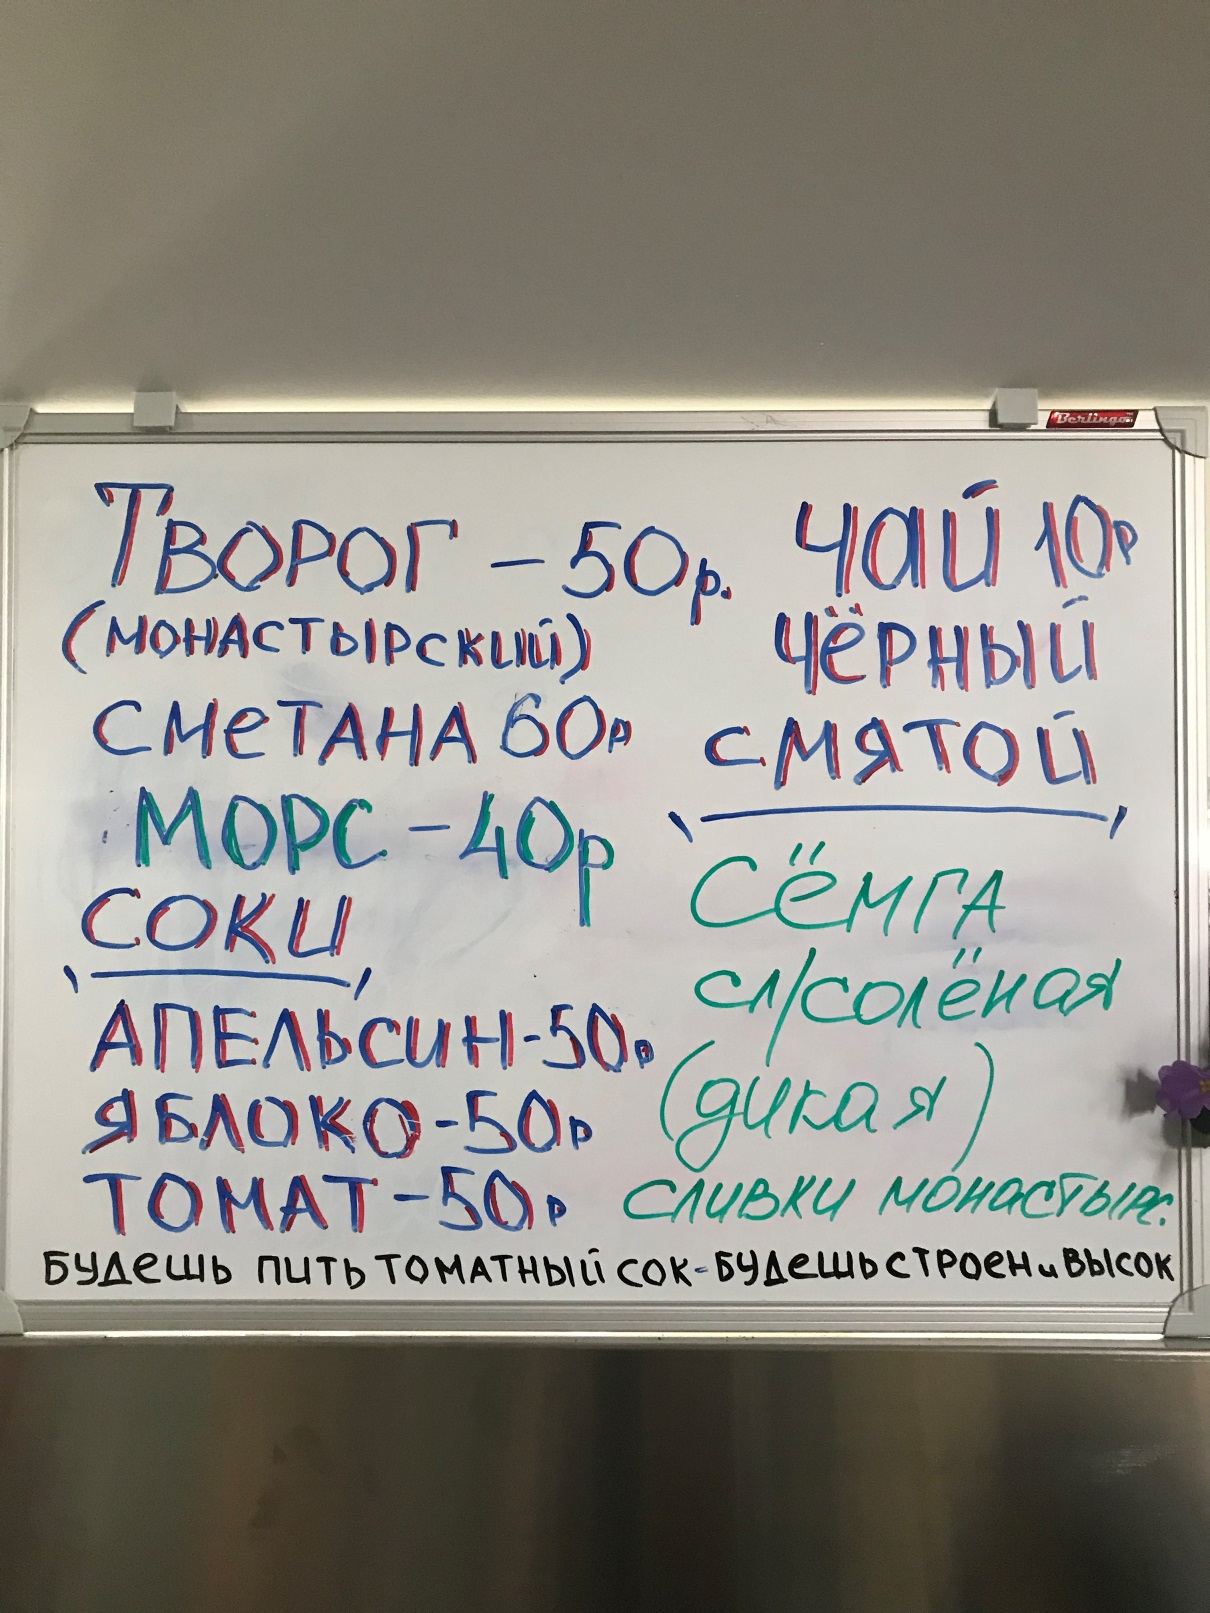 Berlingo
ТВОРОГ - 50р.
(МОНАСТЫРСКИЙ)
СМЕТАНА 60р
МОРС - 40р
СОКИ
АПЕЛЬСИН-50р
ЯБЛОКО-50р
ТОМАТ-50р
ЧАЙ 10р
ЧЁРНЫЙ
С МЯТОЙ
СЁМГА
сл/солёная
(дикая)
СЛИВКИ МОНАСТЫРС.
БУДЕШЬ ПИТЬ ТОМАТНЫЙ СОК-БУДЕШЬ СТРОЕН и ВЫСОК